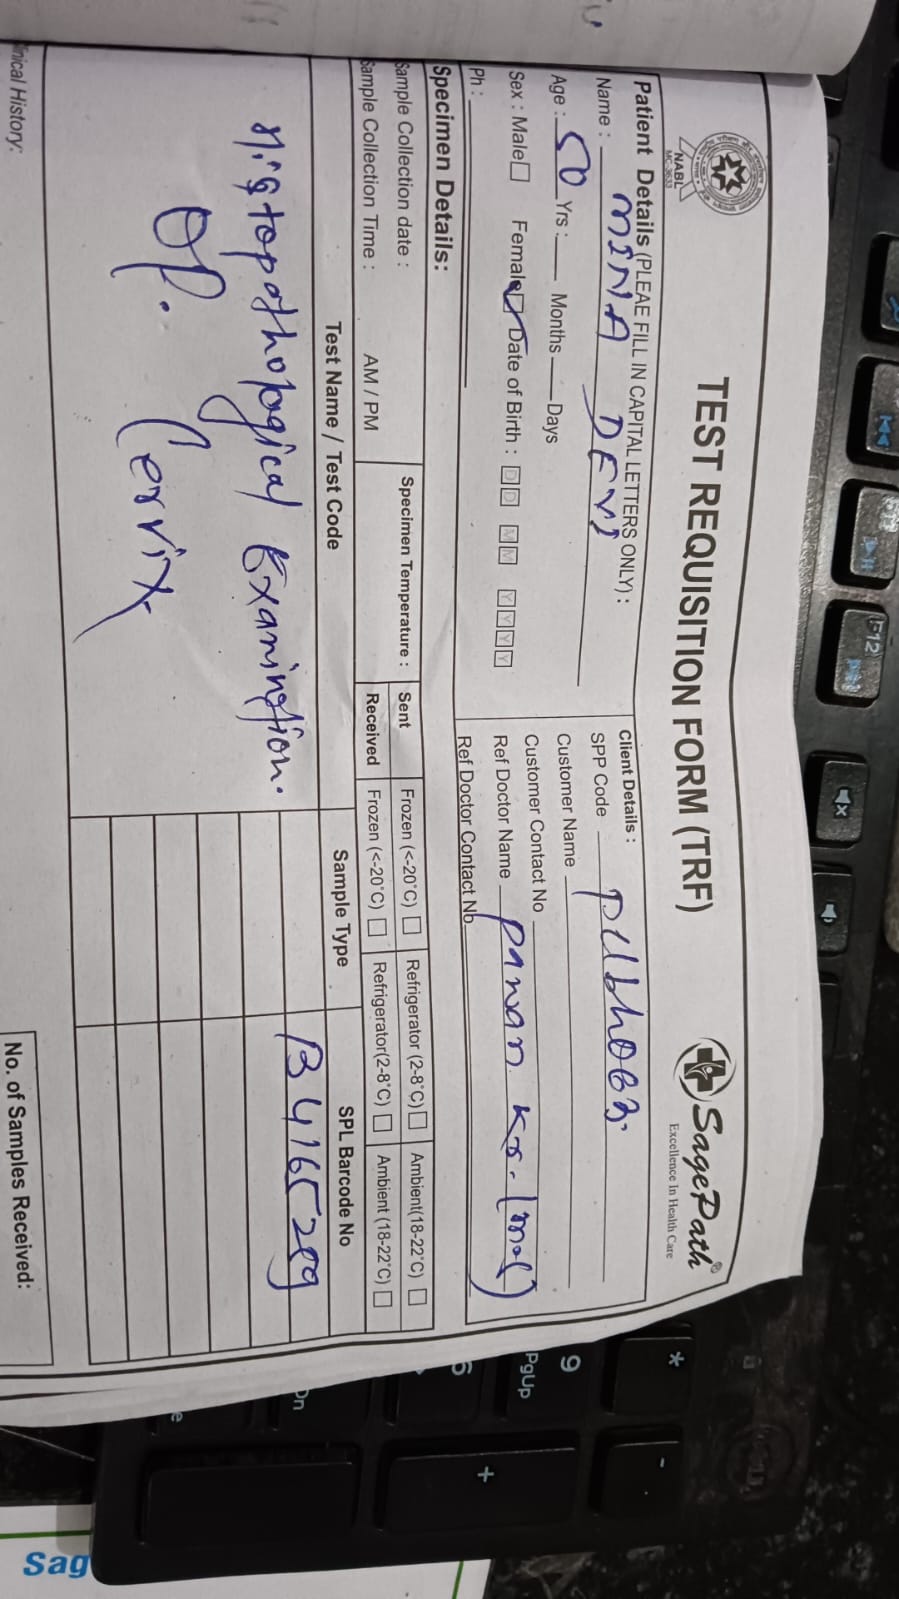 TEST REQUISITION FORM (TRF)
NABL
SagePath®
Excellence In Health Care
Patient Details (PLEAE FILL IN CAPITAL LETTERS ONLY) :
Name : MINA DEVI
Age : 50 Yrs : Months Days
Sex : Male Female Date of Birth : DD MM YYYY
Ph :
Client Details :
SPP Code
Customer Name
Customer Contact No
Ref Doctor Name Pawan Kr. (mol)
Ref Doctor Contact No
Specimen Details:
Sample Collection date :
Sample Collection Time : AM / PM
Specimen Temperature :
Sent Frozen (<-20°C) Refrigerator (2-8°C) Ambient(18-22°C)
Received Frozen (<-20°C) Refrigerator(2-8°C) Ambient (18-22°C)
Test Name / Test Code Sample Type SPL Barcode No
Histopathological Examination. B4165209
OP. Cervix
inical History:
No. of Samples Received:
F12
9
PgUp
6
*
-
+
Sag